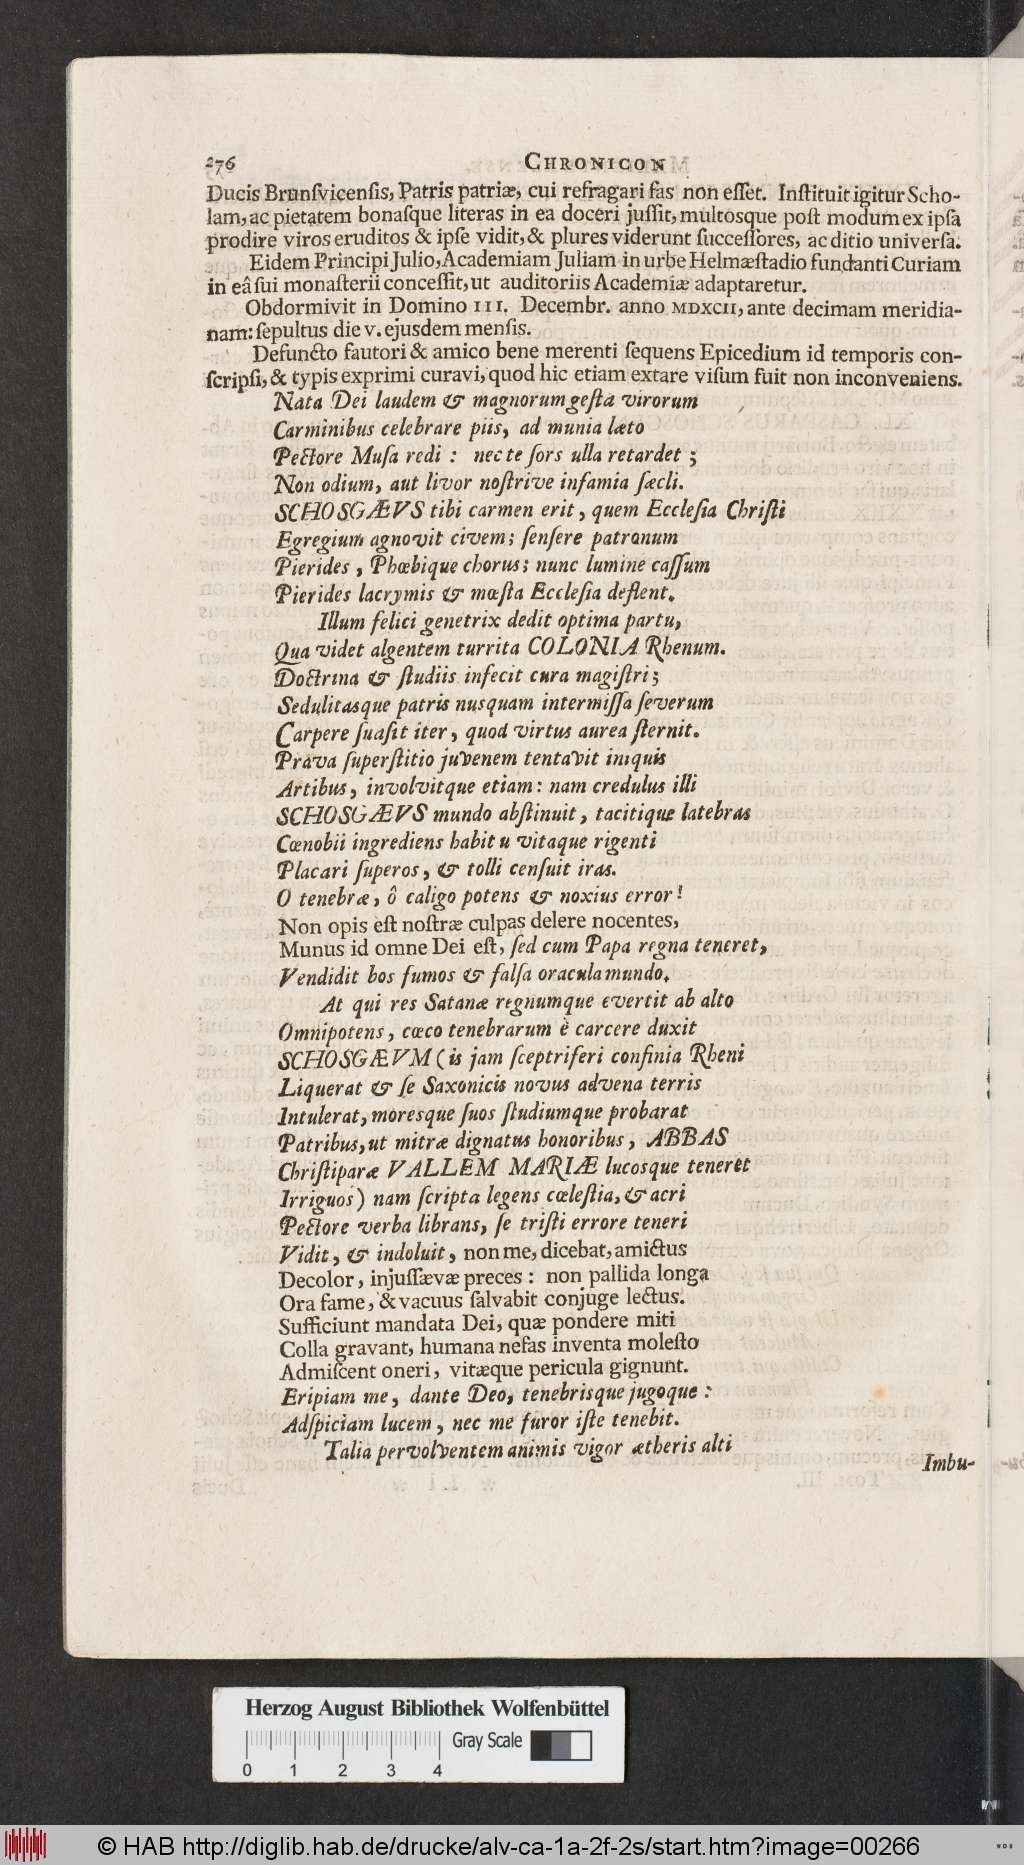 276 CHRONICON
Ducis Brunſvicenſis, Patris patriæ, cui refragari fas non eſſet. Inſtituit igitur Scho-
lam, ac pietatem bonaſque literas in ea doceri juſſit, multosque poſt modum ex ipſa
prodire viros eruditos & ipſe vidit, & plures viderunt ſucceſſores, ac ditio univerſa.
Eidem Principi Julio, Academiam Juliam in urbe Helmæſtadio fundanti Curiam
in eâ ſui monaſterii conceſſit, ut auditoriis Academiæ adaptaretur.
Obdormivit in Domino III. Decembr. anno MDXCII, ante decimam meridia-
nam: ſepultus die v. ejusdem menſis.
Defuncto fautori & amico bene merenti ſequens Epicedium id temporis con-
ſcripſi, & typis exprimi curavi, quod hic etiam extare viſum fuit non inconveniens.
Nata Dei laudem & magnorum geſta virorum
Carminibus celebrare piis, ad munia læto
Pectore Muſa redi: nec te ſors ulla retardet;
Non odium, aut livor noſtrive infamia ſæcli.
SCHOSGÆVS tibi carmen erit, quem Eccleſia Chriſti
Egregium agnovit civem; ſenſere patronum
Pierides, Phœbique chorus; nunc lumine caſſum
Pierides lacrymis & mœſta Eccleſia deflent.
Illum felici genetrix dedit optima partu,
Qua videt algentem turrita COLONIA Rhenum.
Doctrina & ſtudiis infecit cura magiſtri;
Sedulitasque patris nusquam intermiſſa ſeverum
Carpere ſuaſit iter, quod virtus aurea ſternit.
Prava ſuperſtitio juvenem tentavit iniquis
Artibus, involvitque etiam: nam credulus illi
SCHOSGÆVS mundo abſtinuit, tacitique latebras
Cœnobii ingrediens habitu vitaque rigenti
Placari ſuperos, & tolli cenſuit iras.
O tenebræ, ô caligo potens & noxius error!
Non opis eſt noſtræ culpas delere nocentes,
Munus id omne Dei eſt, ſed cum Papa regna teneret,
Vendidit hos fumos & falſa oracula mundo.
At qui res Satanæ regnumque evertit ab alto
Omnipotens, cœco tenebrarum è carcere duxit
SCHOSGÆVM (is jam ſceptriferi confinia Rheni
Liquerat & ſe Saxonicis novus advena terris
Intulerat, moresque ſuos ſtudiumque probarat
Patribus, ut mitræ dignatus honoribus, ABBAS
Chriſtiparæ VALLEM MARIÆ lucosque teneret
Irriguos) nam ſcripta legens cœleſtia, & acri
Pectore verba librans, ſe triſti errore teneri
Vidit, & indoluit, non me, dicebat, amictus
Decolor, injuſſævæ preces: non pallida longa
Ora fame, & vacuus ſalvabit conjuge lectus.
Sufficiunt mandata Dei, quæ pondere miti
Colla gravant, humana nefas inventa moleſto
Admiſcent oneri, vitæque pericula gignunt.
Eripiam me, dante Deo, tenebrisque jugoque:
Adſpiciam lucem, nec me furor iſte tenebit.
Talia pervolventem animis vigor ætheris alti
Imbu-
Herzog August Bibliothek Wolfenbüttel
Gray Scale
0 1 2 3 4
© HAB http://diglib.hab.de/drucke/alv-ca-1a-2f-2s/start.htm?image=00266